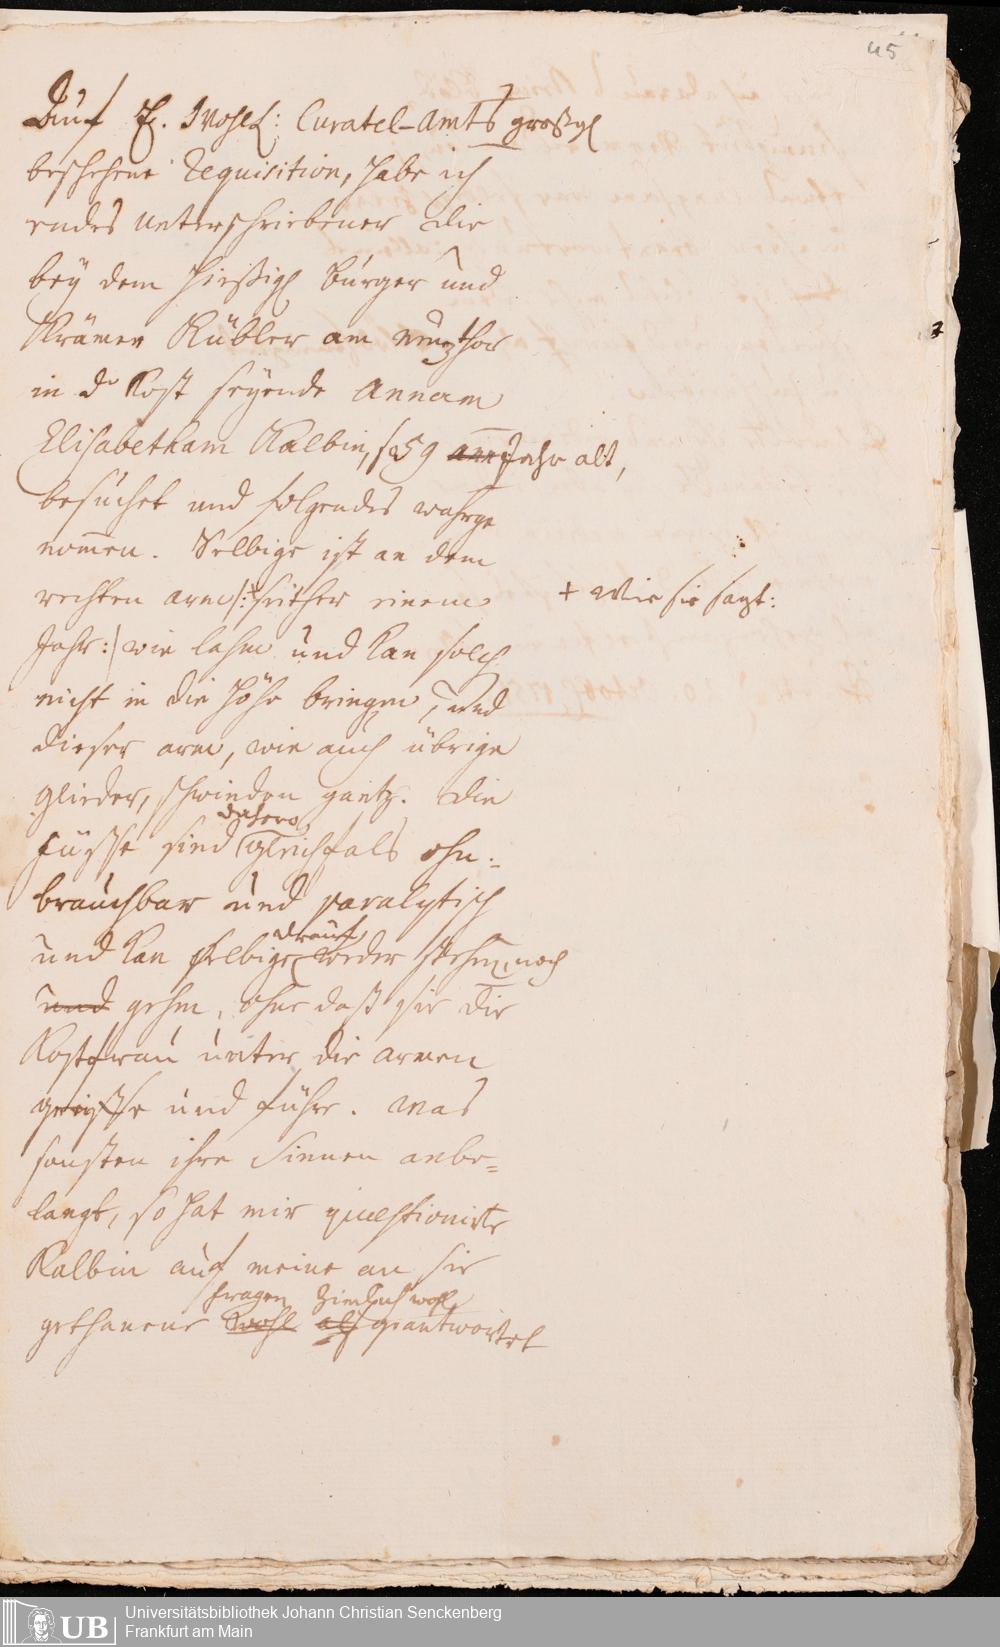 45
Auf E. Wohll: Curatel-Amts großgl
beschehene Requisition, habe ich
endes unterschriebener die
bey dem hießigl Bürger und
Krämer Kübler am
in d Kost seyende Annam
Elisabetham Kalbin, 59 Jahr alt,
besucht und folgendes wahrge
nom̄en. Selbige ist an dem
rechten arm /:+ seither einem
+ wie sie sagt:
Jahr:/ wie lahm und kan solch
nicht in die Höhe bringen, und
dieser arm, wie auch übrige
glieder, schwinden gantz. Die
dahero
füsse sind gleichfals ohn-
brauchbar und paralytisch
drauf
und kan selbige weder stehen, noch
und gehen, ohne daß sie die
Kostfrau unter die armen
greiffe und führe. Was
sonsten ihre Sinnen anbe=
langt, so hat mir quaestionirte
Kalbin auf meine an sie
fragen Ziemlich wohl
gethanene wohl geantwortet
Universitätsbibliothek Johann Christian Senckenberg
Frankfurt am Main
UB